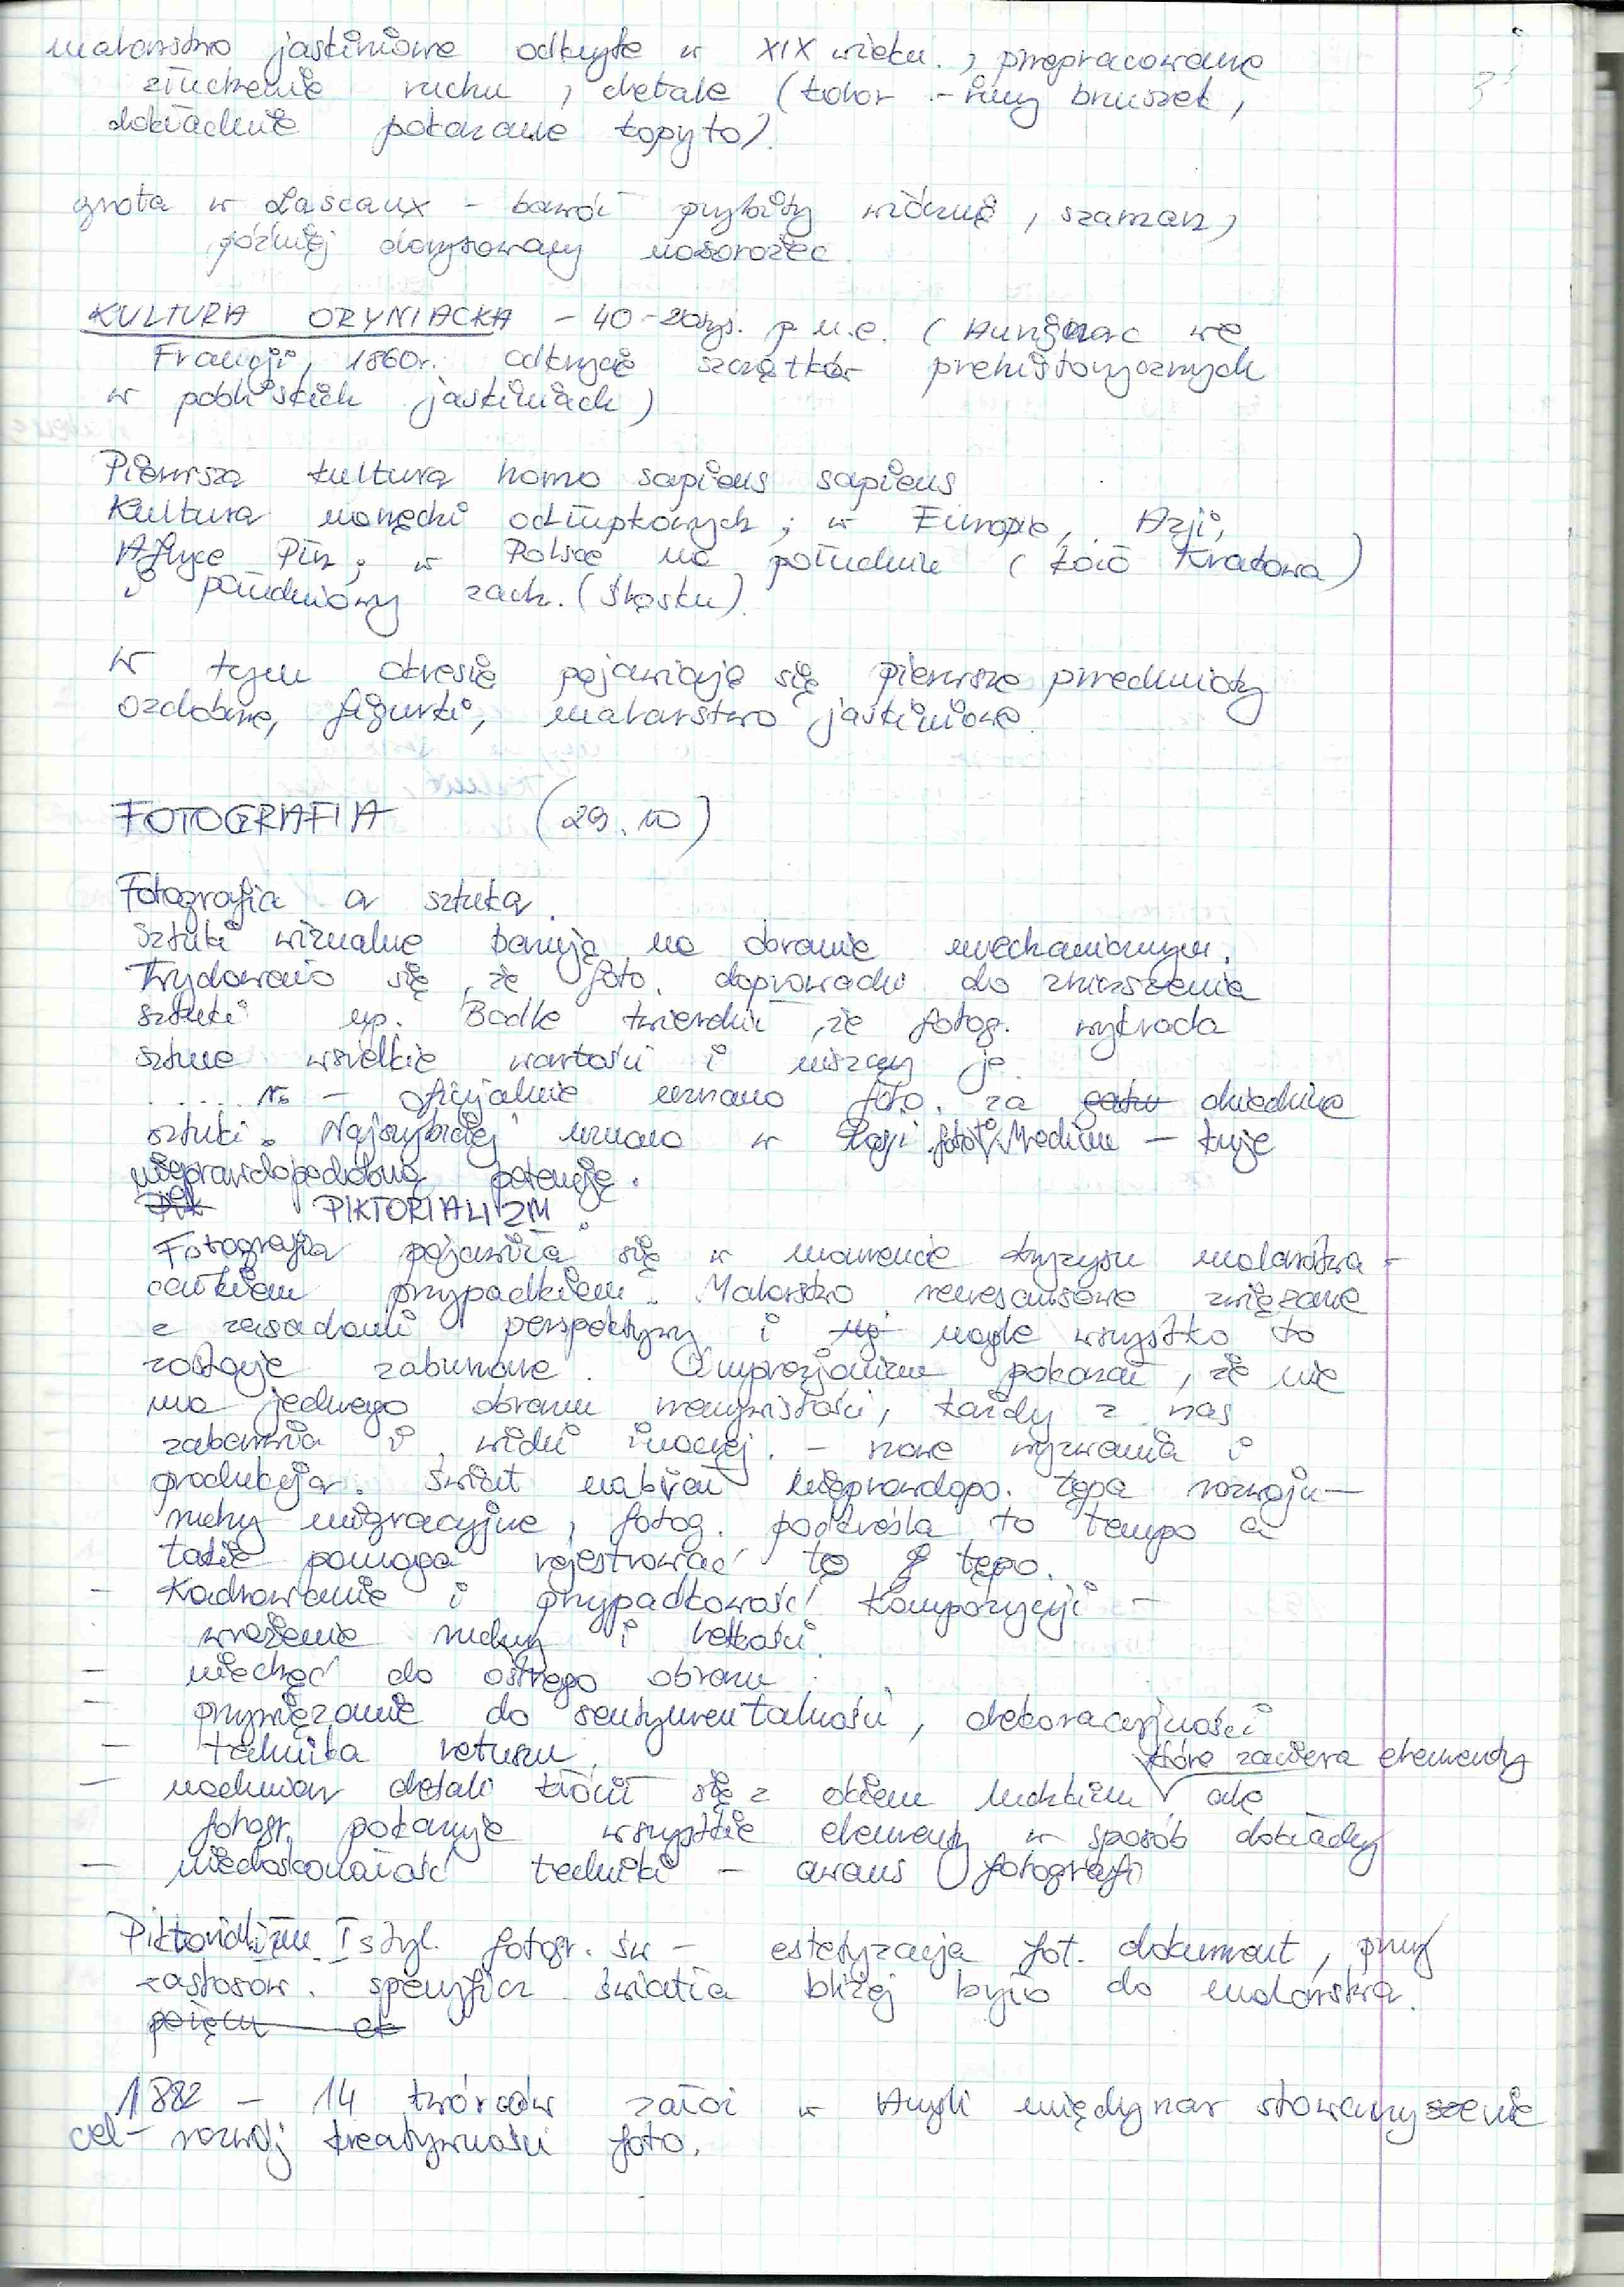 malarstwo jaskiniowe odkryte w XIX wieku., przepracowane
złudzenie ruchu, detale (kolor - inny brzuszek,
dokładnie pokazane kopyto).
grota w Lascaux - bawół przybity włócznią, szaman,
później dorysowany nosorożec
KULTURA ORYNIACKA - 40-20tyś. p.n.e. (Aurignac we
Francji, 1860r. odkrycie szczątków prehistorycznych
w pobliskich jaskiniach)
Pierwsza kultura homo sapiens sapiens
Kultura narzędzi odłupkowych; w Europie, Azji,
Afryce Płn; w Polsce na południu (koło Krakowa)
i południowy zach. (Śląsku).
W tym okresie pojawiają się pierwsze przedmioty
ozdobne, figurki, malarstwo jaskiniowe.
FOTOGRAFIA (29.10)
Fotografia a sztuka.
Sztuki wizualne bazują na obrazie mechanicznym.
Wydawało się, że foto. doprowadzi do zniszczenia
sztuki np. twierdził, że fotog. wykrada
sztuce wszelkie wartości i niszczy je.
..... r. - oficjalnie uznano foto. za dziedzinę
sztuki. Najszybciej uznano w Rosji foto. Medium -
nieprawdopodobną potencję.
PIKTORIALIZM.
Fotografia pojawiła się w momencie kryzysu malarstwa -
całkiem przypadkiem. Malarstwo renesansowe związane
z zasadami perspektywy i nagle wszystko to
zostaje zaburzone. Impresjonizm pokazał, że nie
ma jednego obrazu rzeczywistości, każdy z nas
zabarwia i widzi inaczej. - nowe wyzwania i
produkcja. Świat nabrał nieprawdopo. tępa rozwoju -
ruchy migracyjne, fotog. podkreśla to tempo a
także pomaga rejestrować to tępo.
- Kadrowanie i przypadkowość kompozycji -
wrażenie ruchu i lekkości.
- niechęć do ostrego obrazu.
- przywiązanie do sentymentalności, dekoracyjności
- technika retuszu.
- nadmiar detali kłócił się z okiem ludzkim które zawiera elementy, ale
fotogr. pokazuje wszystkie elementy w sposób dokładny
- niedoskonałość techniki - awans fotografii
Piktorializm I styl. fotogr. św - estetyzacja fot. dokument, przy
zastosow. specyficz. światła bliżej było do malarstwa.
1882 - 14 twórców założ w Anglii międzynar stowarzyszenie
cel - rozwój kreatywności foto.